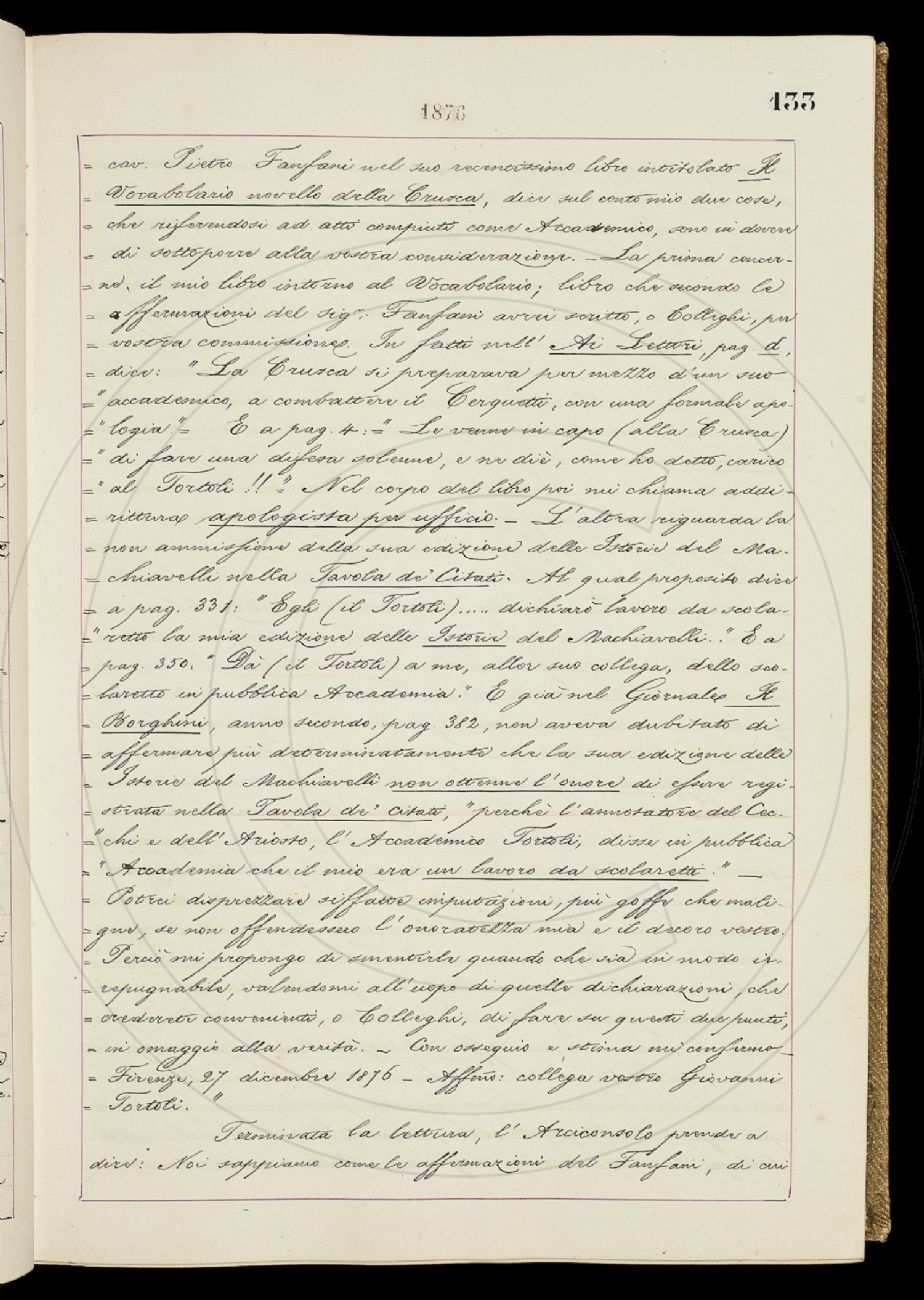 1876
133
= cav. Pietro Fanfani nel suo recentissimo libro intitolato Il
= Vocabolario novello della Crusca, dice sul conto mio due cose,
= che riferendosi ad atti compiuti come Accademico, sono in dovere
= di sottoporre alla vostra considerazione. – La prima concer-
= ne, il mio libro intorno al Vocabolario; libro che secondo le
= affermazioni del sig.r Fanfani avrei scritto, o Colleghi, per
= vostra commissione. In fatti nell' Ai Lettori, pag. d,
= dice: " La Crusca si preparava per mezzo d'un suo
=" accademico, a combattere il Cerquetti, con una formale apo-
=" logia " = E a pag. 4: = " Le venne in capo (alla Crusca)
=" di fare una difesa solenne, e ne diè, come ho detto, carico
=" al Tortoli!! " = Nel corpo del libro poi mi chiama addi-
= rittura apologista per ufficio. – L'altra riguarda la
= non ammissione della sua edizione delle Istorie del Ma-
= chiavelli nella Tavola de' Citati. Al qual proposito dice
= a pag. 331: " Egli (il Tortoli)..... dichiarò lavoro da scola-
=" retto la mia edizione delle Istorie del Machiavelli.." E a
= pag. 350. " Dà (il Tortoli) a me, allor suo collega, dello sco-
= laretto in pubblica Accademia." E già nel Giornale Il
= Borghini, anno secondo, pag. 382, non aveva dubitato di
= affermare più determinatamente che la sua edizione delle
= Istorie del Machiavelli non ottenne l'onore di essere regi-
= strata nella Tavola de' citati, " perchè l'annotatore del Cec-
=" chi e dell'Ariosto, l'Accademico Tortoli, disse in pubblica
=" Accademia che il mio era un lavoro da scolaretti." —
= Potrei disprezzare siffatte imputazioni, più goffe che mali-
= gne, se non offendessero l'onoratezza mia e il decoro vostro.
= Perciò mi propongo di smentirle quando che sia in modo ir-
= repugnabile, valendomi all'uopo di quelle dichiarazioni, che
= crederete convenienti, o Colleghi, di fare su questi due punti,
= in omaggio alla verità. – Con ossequio e stima mi confermo –
= Firenze, 27 dicembre 1876 – Affmo: collega vostro Giovanni
= Tortoli. "
Terminata la lettura, l'Arciconsolo prende a
dire: Noi sappiamo come le affermazioni del Fanfani, di cui